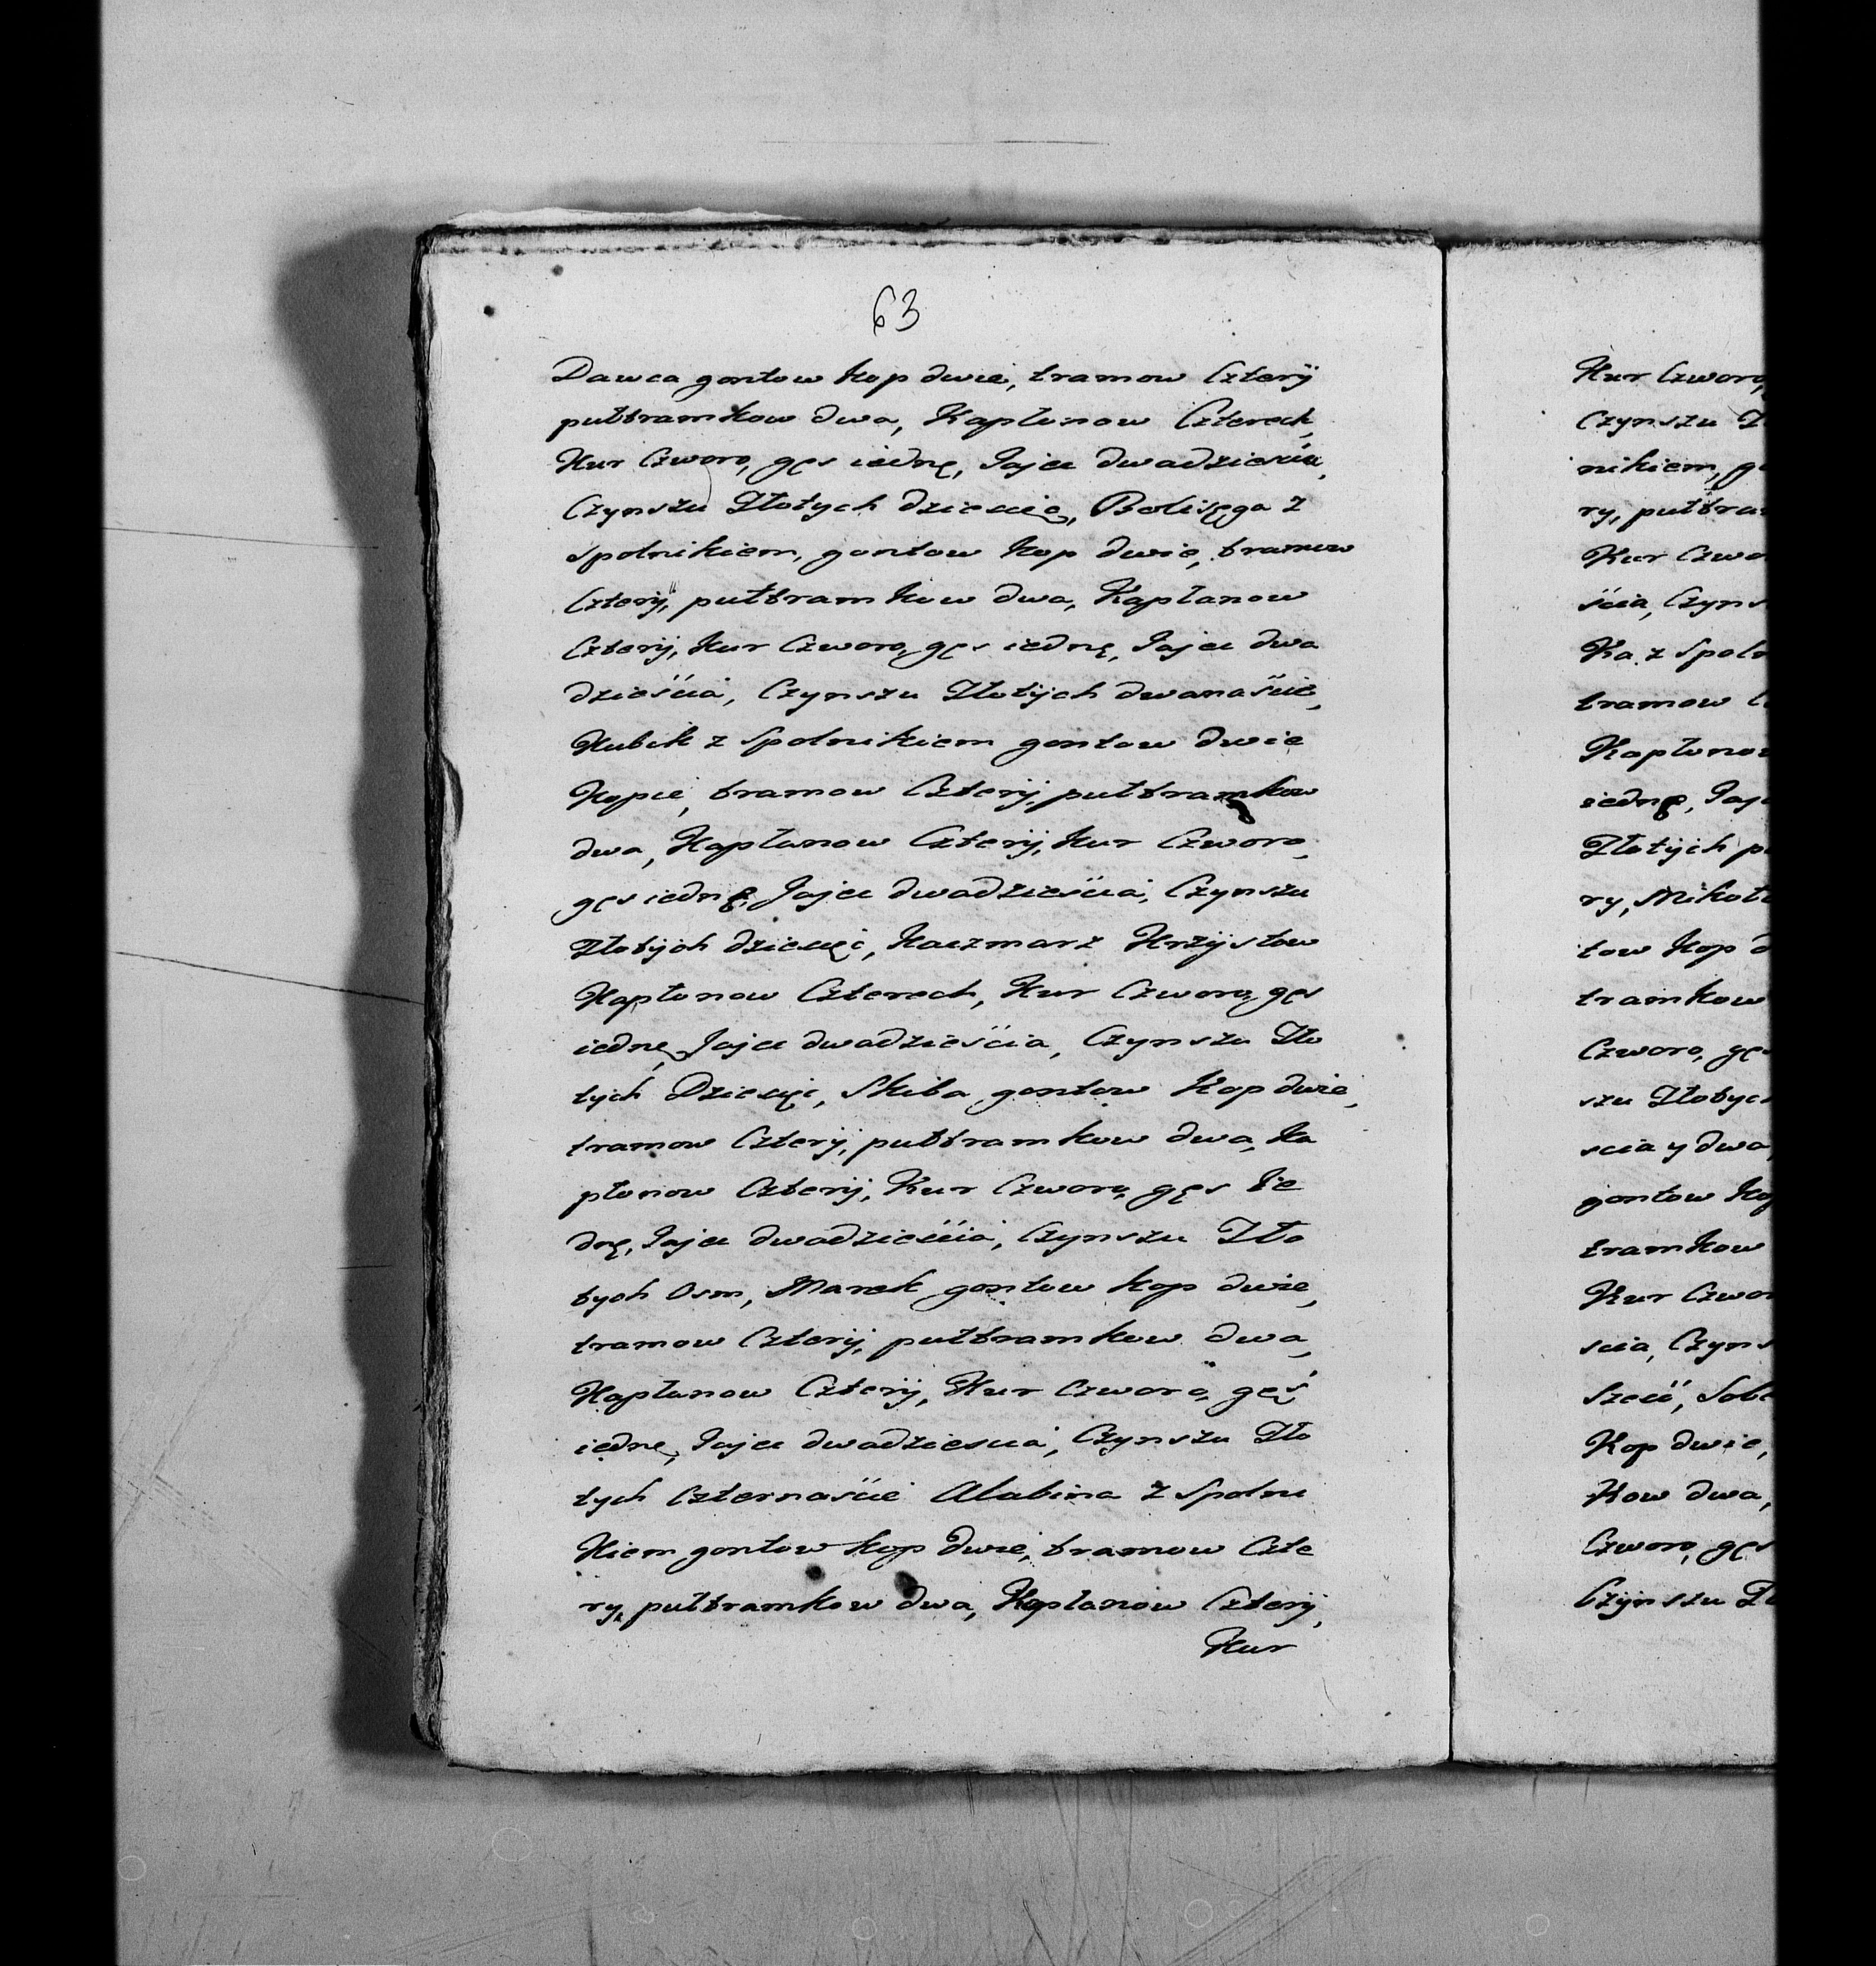 63
Dawca gontow kop dwie, tramow Czterÿ
pułtramkow dwa, Kapłunow Czterech,
Kur Czworo, gęs iednę, Jajec dwadzieścia,
Czynszu Złotych dziesięc, Bolisęga z
Spolnikiem, gontow kop dwie, tramow
Czterÿ, pułtramkow dwa, Kapłanow
Czterÿ, Kur Czworo, gęs iednę, Jajec dwa
dzieścia, Czynszu Złotÿch dwanaście,
Kubik z Spolnikiem gontow dwie
Kopie, tramow Czterÿ, pułtramkow
dwa, Kapłunow Czterÿ, Kur Czworo,
gęs iednę, Jajec dwadzieścia, Czynszu
Złotÿch dziesięc, Kaczmarz Krzÿstow
Kapłunow Czterech, Kur Czworo, gęs
iednę, Jajec dwadzieścia, Czynszu Zło
tych Dziesięc, Skiba gontow Kop dwie,
tramow Czterÿ, pułtramkow dwa, Ka
płunow Czterÿ, Kur Czworo, gęs ie
dnę, Jajec dwadzieścia, Czynszu Zło
tych Osm, Marek gontow kop dwie,
tramow Czterÿ, pułtramkow dwa,
Kapłunow Czterÿ, Kur Czworo, gęś
iednę, Jajec dwadziescia, Czynszu Zło
tych Czternaście Alabina z Spolni
Kiem gontow kop dwie, tramow Czte
ry, pułtramkow dwa, Kaplanow Czterÿ,
Kur
Kur Czworo,
Czynszu
nikiem,
ry,
Kur
ścia,
Ka z
tramow
iednę,
Złotÿch
ry,
tow kop
tramkow
Czworo, gęs
szu
scia y dwa,
gontow
tramkow
Kur
scia,
Sześć,
Kop dwie,
Kow dwa,
Czworo, gęs
Czÿnszu